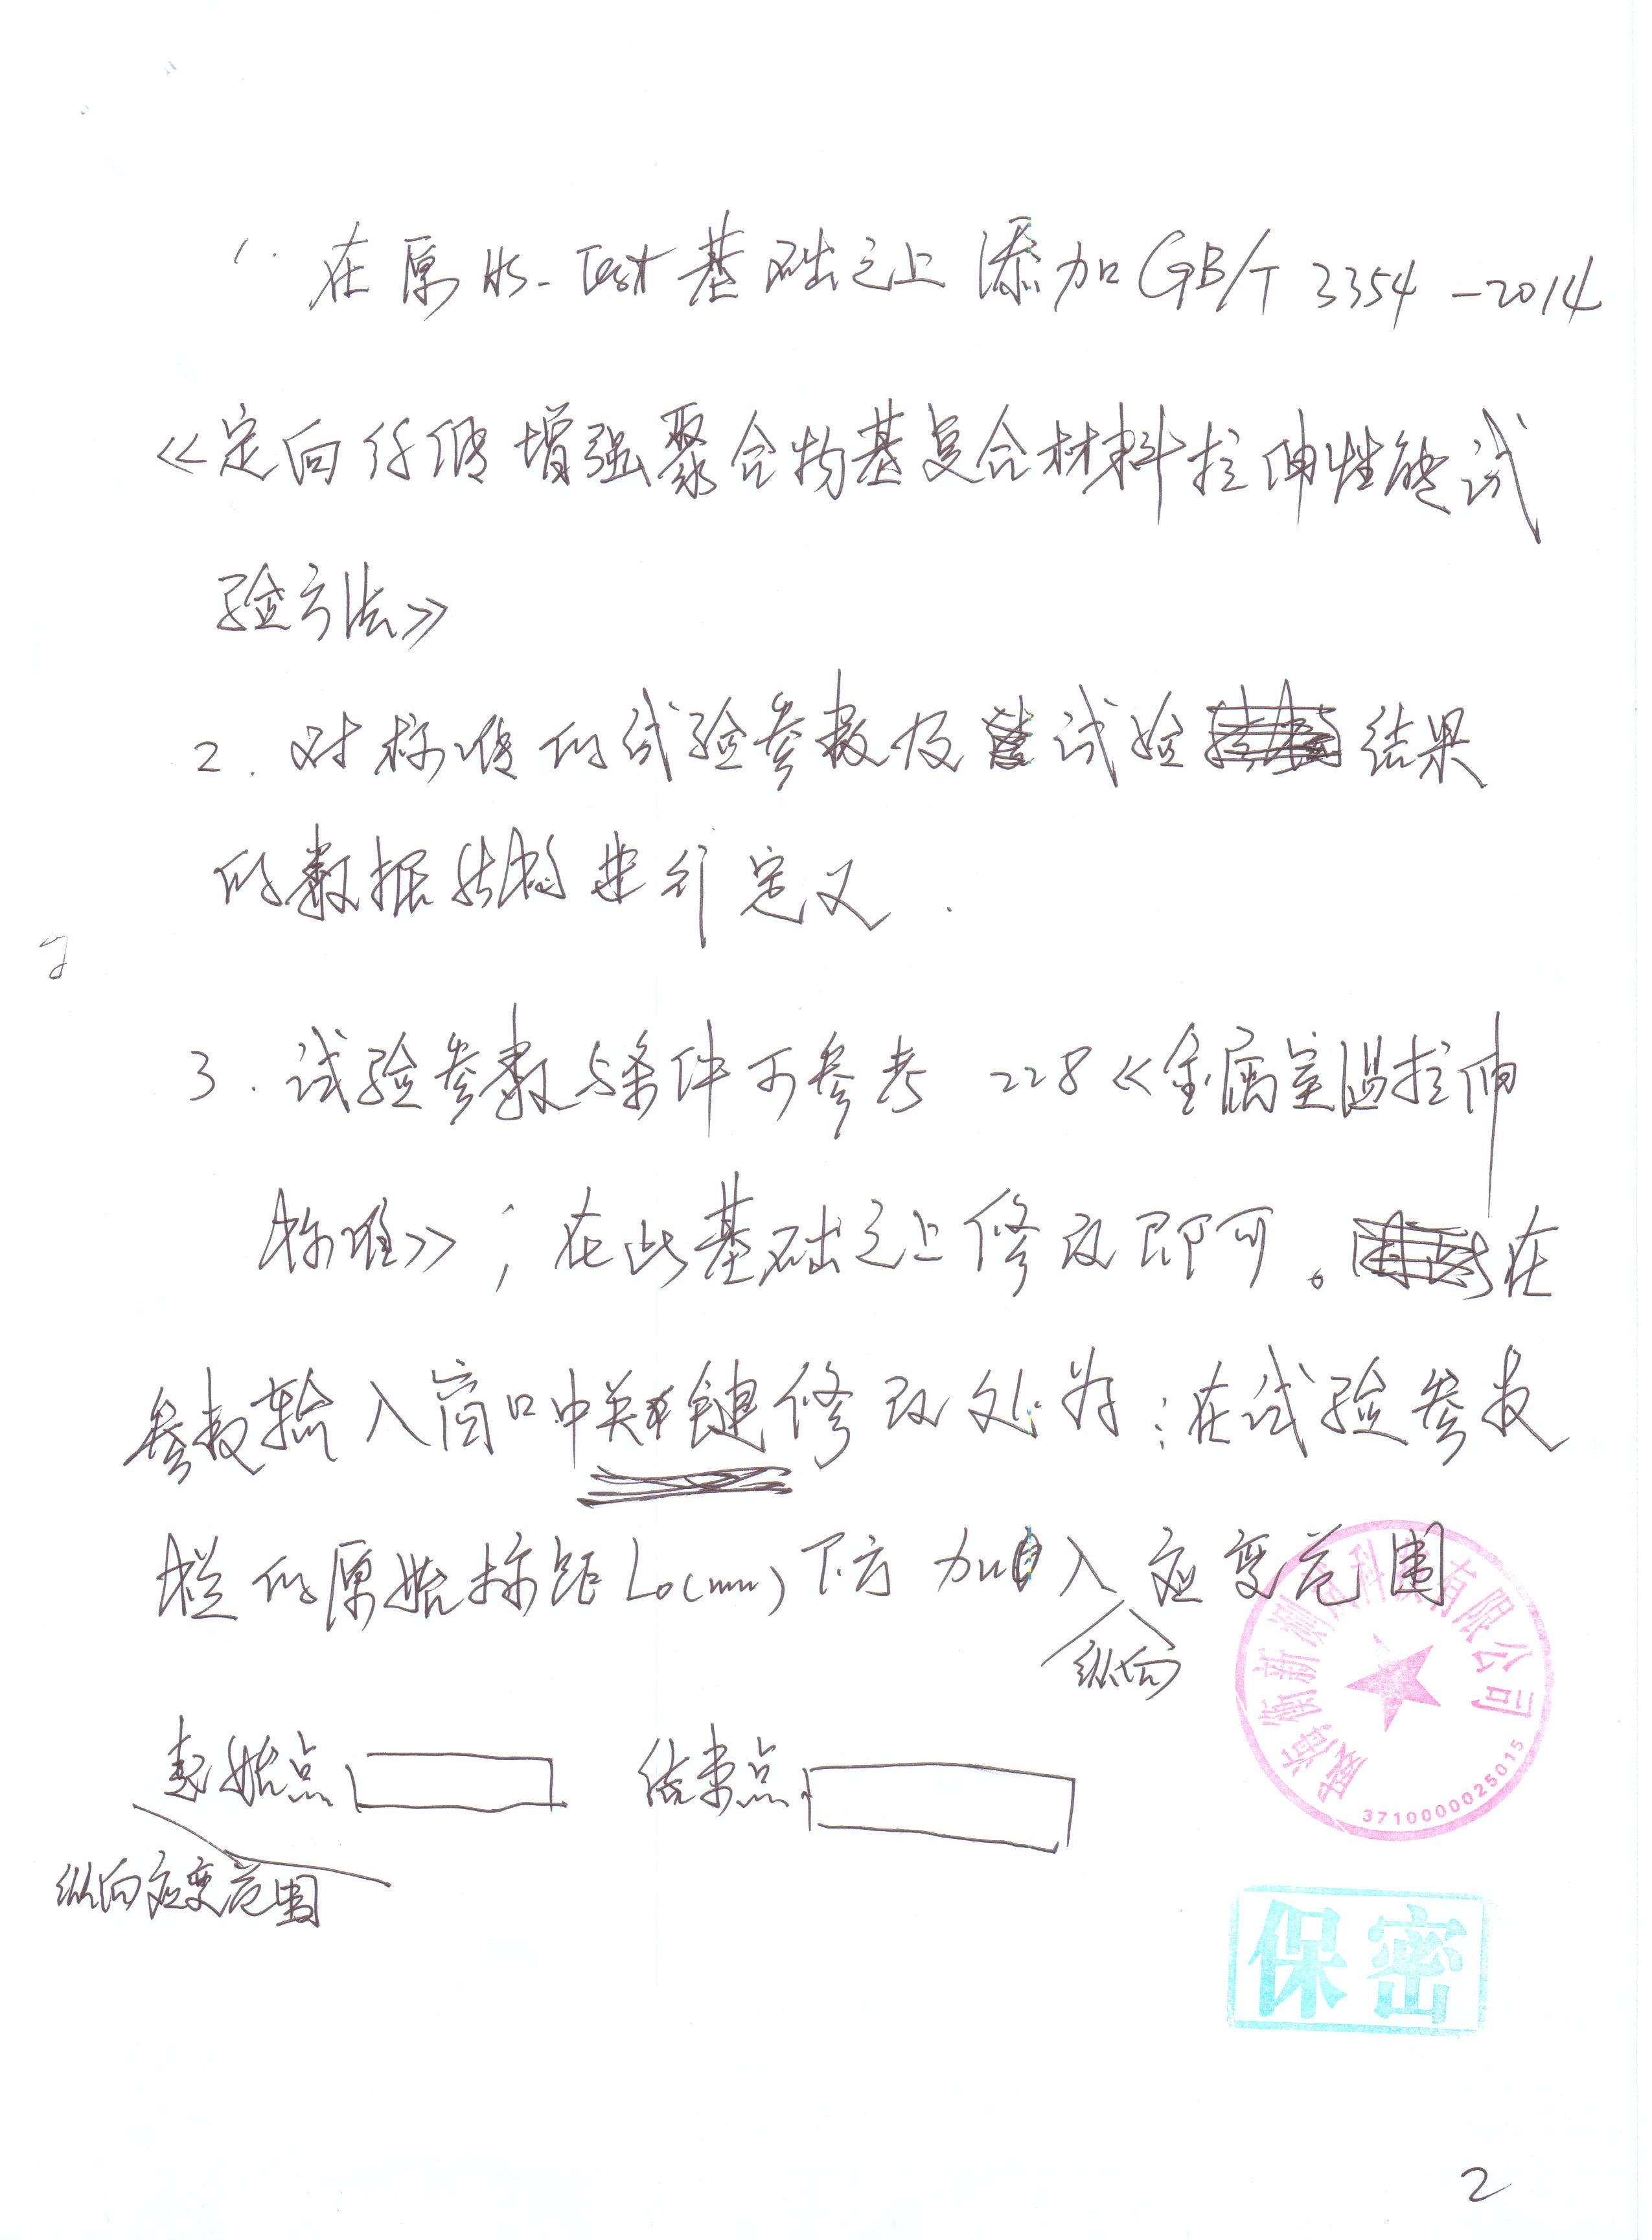 1. 在原HS-Test基础之上添加GB/T 3354-2014
《定向纤维增强聚合物基复合材料拉伸性能试
验方法》
2. 对标准的试验参数及试验结果
的数据结构进行定义.
3. 试验参数与条件可参考 228《金属室温拉伸
标准》;在此基础之上修改即可。在
参数输入窗口中关键修改处为:在试验参数
栏的原始标距L0(mm)下方加入应变范围
纵向
起始点 结束点
纵向应变范围
威海衡新测试科技有限公司
3710000025015
保密
2